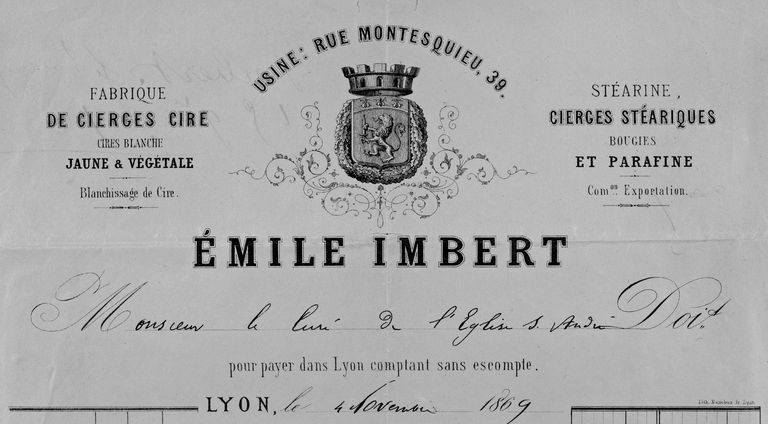 USINE: RUE MONTESQUIEU, 39.
FABRIQUE
DE CIERGES CIRE
CIRES BLANCHE
JAUNE & VÉGÉTALE
Blanchissage de Cire.
STÉARINE,
CIERGES STÉARIQUES
BOUGIES
ET PARAFINE
Comon Exportation.
ÉMILE IMBERT
Monsieur le Curé de l'Eglise S. André Doit
pour payer dans Lyon comptant sans escompte.
LYON, le 4 Novembre 1869